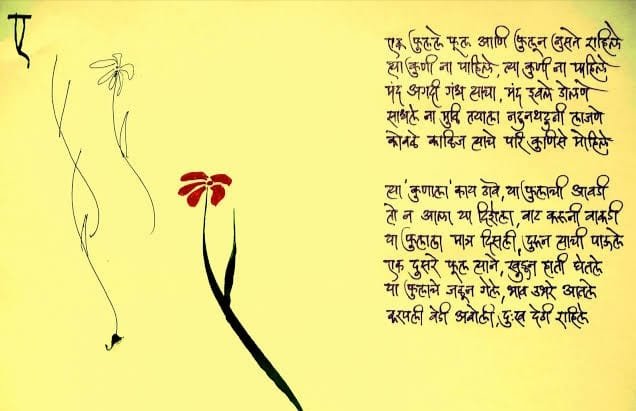 ए
एक फुलले फूल आणि फुलून नुसते राहिले
त्या कुणी ना पाहिले, त्या कुणी ना चाहिले
मंद अगदी गंध त्याचा, मंद इवले डोलणे
साधले ना मुळि तयाला नटुनथटुनी लाजणे
कोवळे काळिज त्याचे परि कुणिसे मोहिले
त्या 'कुणाला' काय ठावे, या फुलाची आवडी
तो न आला या दिशेला, वाट करूनी वाकडी
या फुलाला मात्र दिसली, दुरून त्याची पाऊले
एक दुसरे फूल त्याने, खुडून हाती घेतले
या फुलाचे जळून गेले, भाव उभरे आतले
करपली वेडी अबोली, दु:ख देठी राहिले